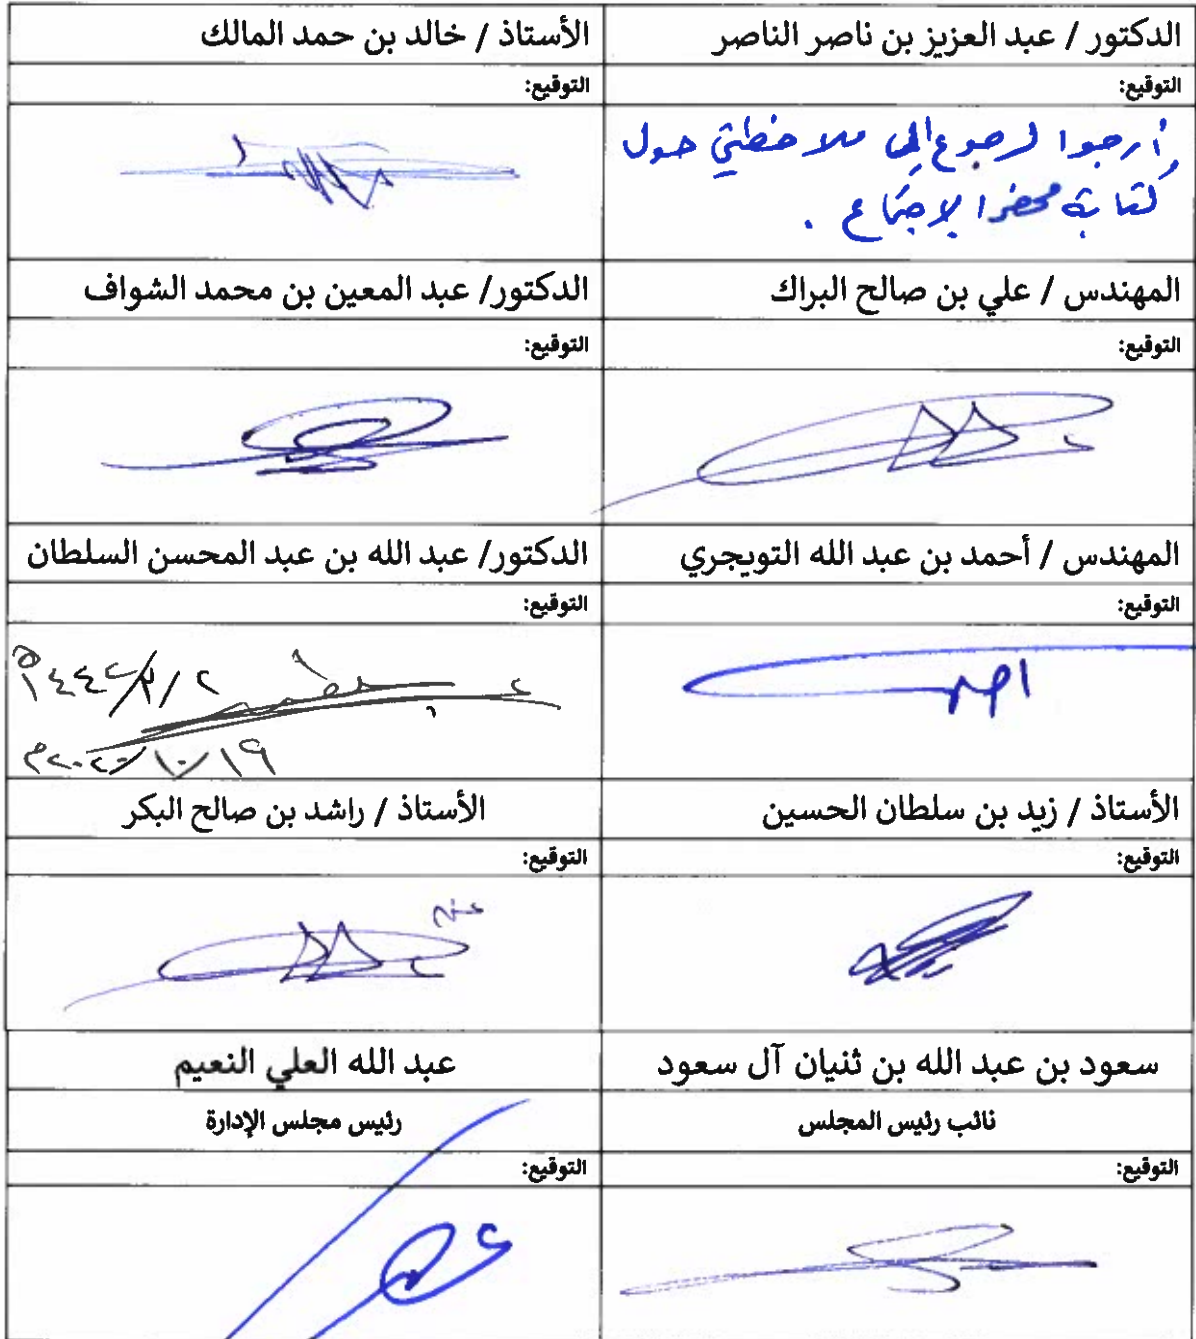 الدكتور / عبد العزيز بن ناصر الناصر
الأستاذ / خالد بن حمد المالك
التوقيع:
التوقيع:
أرجوا لرجوع إلى ملاحظتي حول
كتابة محضر الإجتماع .
المهندس / علي بن صالح البراك
الدكتور/ عبد المعين بن محمد الشواف
التوقيع:
التوقيع:
المهندس / أحمد بن عبد الله التويجري
الدكتور/ عبد الله بن عبد المحسن السلطان
التوقيع:
التوقيع:
احمد
٢/٣/١٤٤٢هـ
١٩/١٠/٢٠٢٠م
الأستاذ / زيد بن سلطان الحسين
الأستاذ / راشد بن صالح البكر
التوقيع:
التوقيع:
عنه
سعود بن عبد الله بن ثنيان آل سعود
عبد الله العلي النعيم
نائب رئيس المجلس
رئيس مجلس الإدارة
التوقيع:
التوقيع: